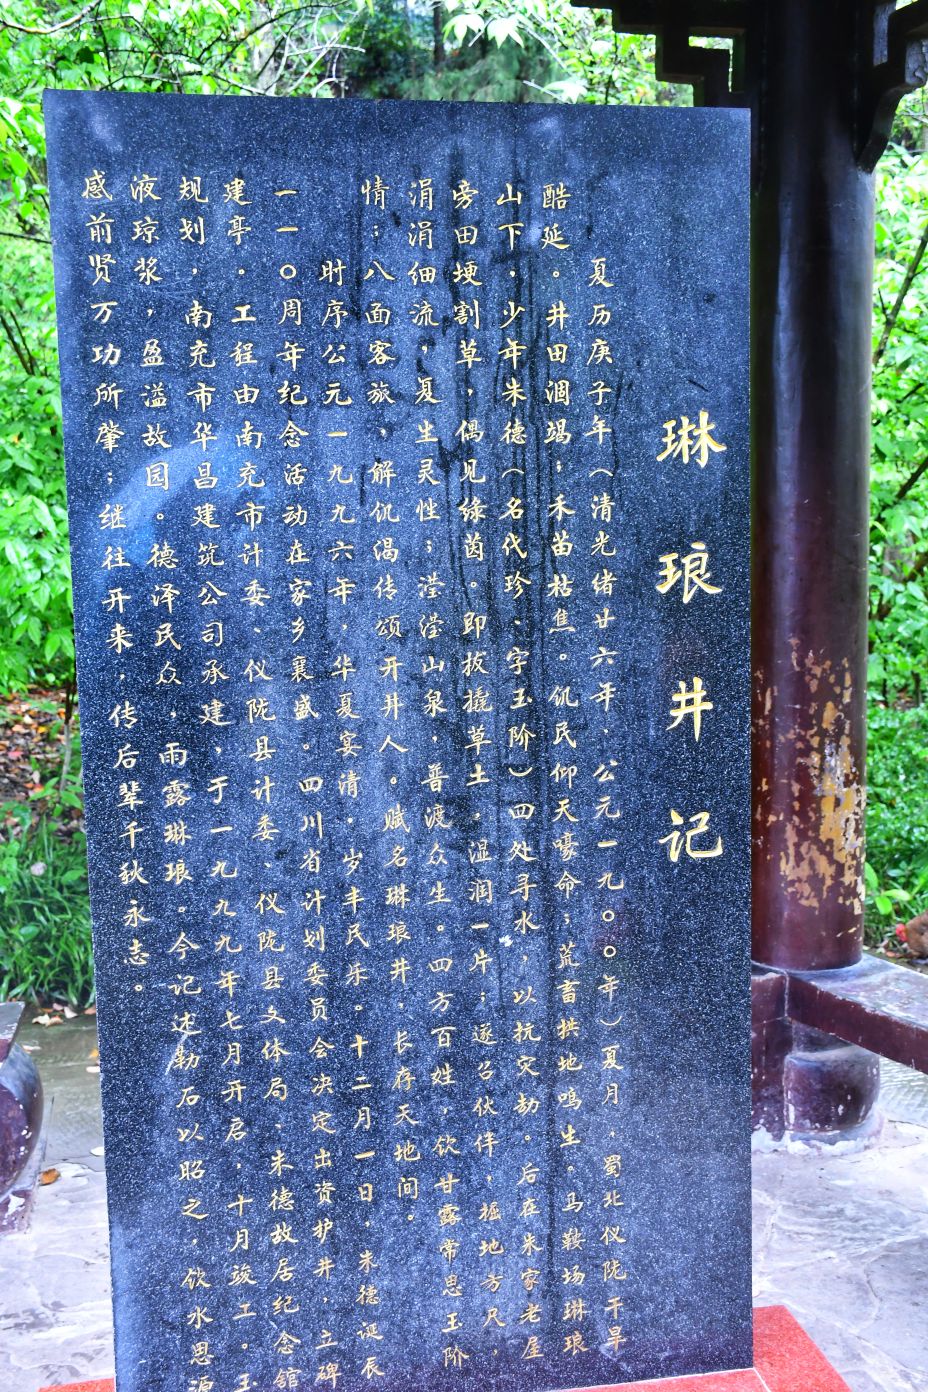 琳琅井记
夏历庚子年（清光绪廿六年．公元一九〇〇年）夏月．蜀北仪陇干旱
酷延。井田涸竭；禾苗枯焦。饥民仰天嚎命；荒畜拱地鸣生。马鞍场琳琅
山下，少年朱德（名代珍、字玉阶）四处寻水，以抗灾劫。后在朱家老屋
旁田埂割草，偶见绿茵。即拔撬草土，湿润一片；遂召伙伴，掘地方尺，
涓涓细流，夏生灵性；滢滢山泉，普渡众生。四方百姓，饮甘露常思玉阶
情；八面客旅，解饥渴传颂开井人。赋名琳琅井，长存天地间。
时序公元一九九六年，华夏宴清．岁丰民乐。十二月一日，朱德诞辰
一一〇周年纪念活动在家乡襄盛。四川省计划委员会决定出资护井，立碑
建亭。工程由南充市计委、仪陇县计委、仪陇县文体局、朱德故居纪念馆
规划，南充市华昌建筑公司承建，于一九九九年七月开启，十月竣工。玉
液琼浆，盈溢故园。德泽民众，雨露琳琅。今记述勒石以昭之，饮水思源
感前贤万功所肇；继往开来，传后辈千秋永志。